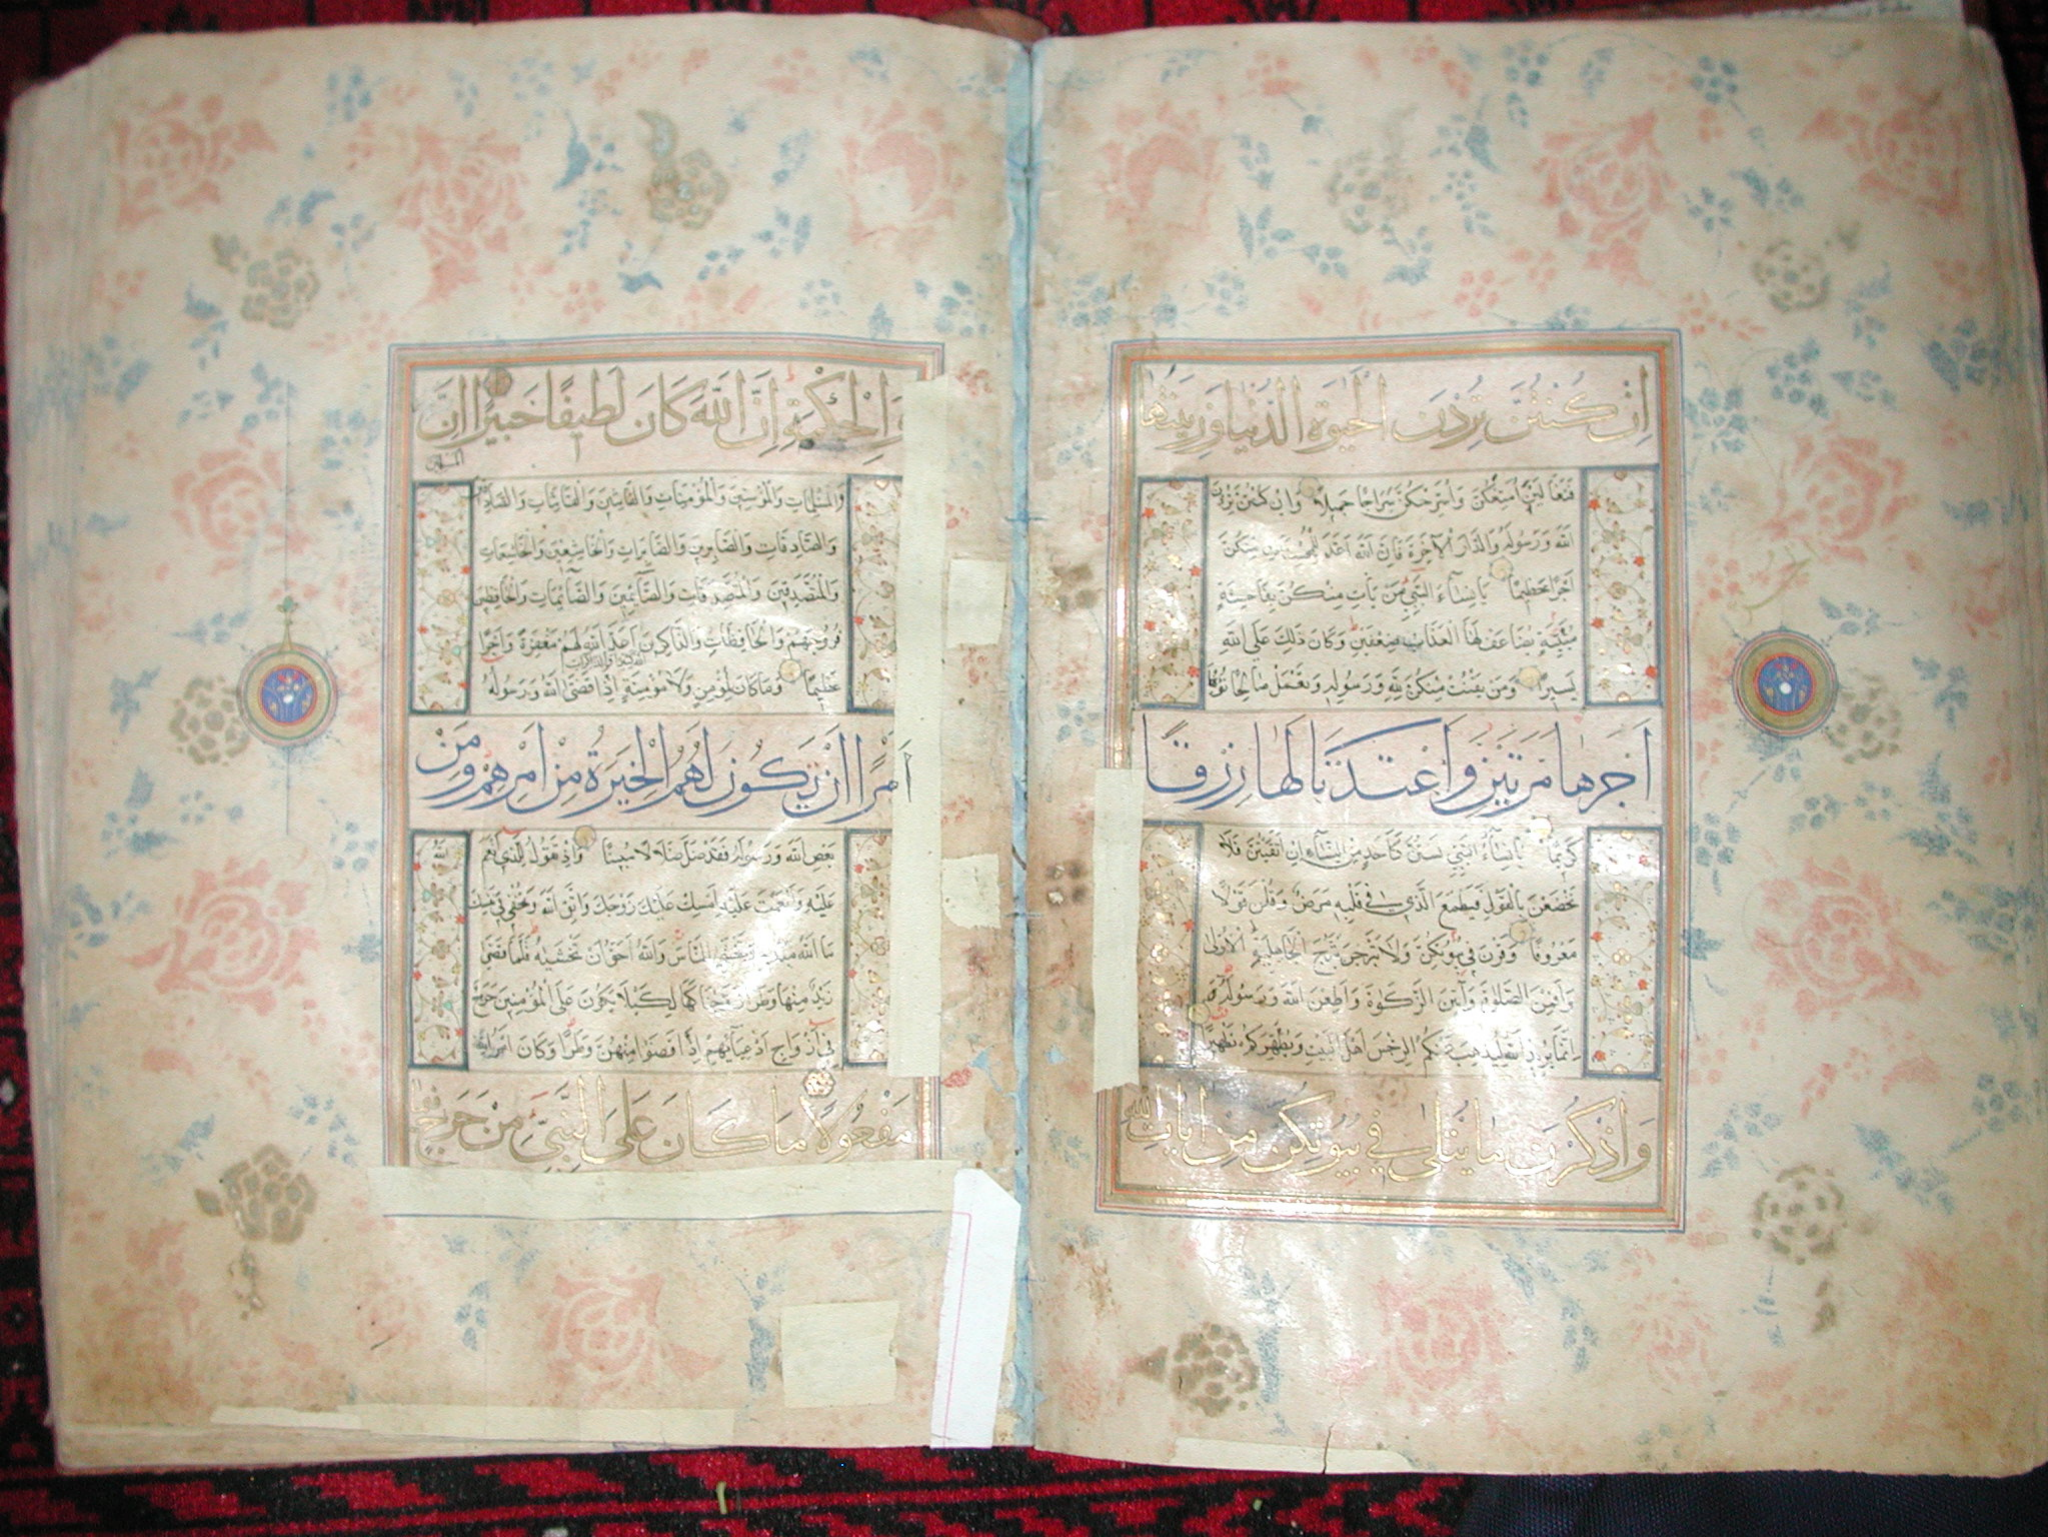 اِنْ كُنْتُنَّ تُرِدْنَ الْحَيٰوةَ الدُّنْيَا وَزِينَتَهَا
فَتَعَالَيْنَ اُمَتِّعْكُنَّ وَاُسَرِّحْكُنَّ سَرَاحًا جَمِيلًا وَاِنْ كُنْتُنَّ تُرِدْنَ
اللّٰهَ وَرَسُولَهُ وَالدَّارَ الْاٰخِرَةَ فَاِنَّ اللّٰهَ اَعَدَّ لِلْمُحْسِنَاتِ مِنْكُنَّ
اَجْرًا عَظِيمًا يَا نِسَآءَ النَّبِيِّ مَنْ يَاْتِ مِنْكُنَّ بِفَاحِشَةٍ
مُبَيِّنَةٍ يُضَاعَفْ لَهَا الْعَذَابُ ضِعْفَيْنِ وَكَانَ ذٰلِكَ عَلَى اللّٰهِ
يَسِيرًا وَمَنْ يَقْنُتْ مِنْكُنَّ لِلّٰهِ وَرَسُولِهِ وَتَعْمَلْ صَالِحًا نُؤْتِهَا
اَجْرَهَا مَرَّتَيْنِ وَاَعْتَدْنَا لَهَا رِزْقًا
كَرِيمًا يَا نِسَآءَ النَّبِيِّ لَسْتُنَّ كَاَحَدٍ مِنَ النِّسَآءِ اِنِ اتَّقَيْتُنَّ فَلَا
تَخْضَعْنَ بِالْقَوْلِ فَيَطْمَعَ الَّذِي فِي قَلْبِهِ مَرَضٌ وَقُلْنَ قَوْلًا
مَعْرُوفًا وَقَرْنَ فِي بُيُوتِكُنَّ وَلَا تَبَرَّجْنَ تَبَرُّجَ الْجَاهِلِيَّةِ الْاُولٰى
وَاَقِمْنَ الصَّلٰوةَ وَاٰتِينَ الزَّكٰوةَ وَاَطِعْنَ اللّٰهَ وَرَسُولَهُ
اِنَّمَا يُرِيدُ اللّٰهُ لِيُذْهِبَ عَنْكُمُ الرِّجْسَ اَهْلَ الْبَيْتِ وَيُطَهِّرَكُمْ تَطْهِيرًا
وَاذْكُرْنَ مَا يُتْلٰى فِي بُيُوتِكُنَّ مِنْ اٰيَاتِ اللّٰهِ
وَالْحِكْمَةِ اِنَّ اللّٰهَ كَانَ لَطِيفًا خَبِيرًا اِنَّ
الْمُسْلِمِينَ
وَالْمُسْلِمَاتِ وَالْمُؤْمِنِينَ وَالْمُؤْمِنَاتِ وَالْقَانِتِينَ وَالْقَانِتَاتِ وَالصَّادِقِينَ
وَالصَّادِقَاتِ وَالصَّابِرِينَ وَالصَّابِرَاتِ وَالْخَاشِعِينَ وَالْخَاشِعَاتِ
وَالْمُتَصَدِّقِينَ وَالْمُتَصَدِّقَاتِ وَالصَّآئِمِينَ وَالصَّآئِمَاتِ وَالْحَافِظِينَ
فُرُوجَهُمْ وَالْحَافِظَاتِ وَالذَّاكِرِينَ اللّٰهَ كَثِيرًا وَالذَّاكِرَاتِ اَعَدَّ اللّٰهُ لَهُمْ مَغْفِرَةً وَاَجْرًا
عَظِيمًا وَمَا كَانَ لِمُؤْمِنٍ وَلَا مُؤْمِنَةٍ اِذَا قَضَى اللّٰهُ وَرَسُولُهُ
اَمْرًا اَنْ يَكُونَ لَهُمُ الْخِيَرَةُ مِنْ اَمْرِهِمْ وَمَنْ
يَعْصِ اللّٰهَ وَرَسُولَهُ فَقَدْ ضَلَّ ضَلَالًا مُبِينًا وَاِذْ تَقُولُ لِلَّذِي اَنْعَمَ
عَلَيْهِ وَاَنْعَمْتَ عَلَيْهِ اَمْسِكْ عَلَيْكَ زَوْجَكَ وَاتَّقِ اللّٰهَ وَتُخْفِي فِي نَفْسِكَ
مَا اللّٰهُ مُبْدِيهِ وَتَخْشَى النَّاسَ وَاللّٰهُ اَحَقُّ اَنْ تَخْشٰيهُ فَلَمَّا قَضٰى
زَيْدٌ مِنْهَا وَطَرًا زَوَّجْنَاكَهَا لِكَيْلَا يَكُونَ عَلَى الْمُؤْمِنِينَ حَرَجٌ
فِي اَزْوَاجِ اَدْعِيَآئِهِمْ اِذَا قَضَوْا مِنْهُنَّ وَطَرًا وَكَانَ اَمْرُ اللّٰهِ
مَفْعُولًا مَا كَانَ عَلَى النَّبِيِّ مِنْ حَرَجٍ